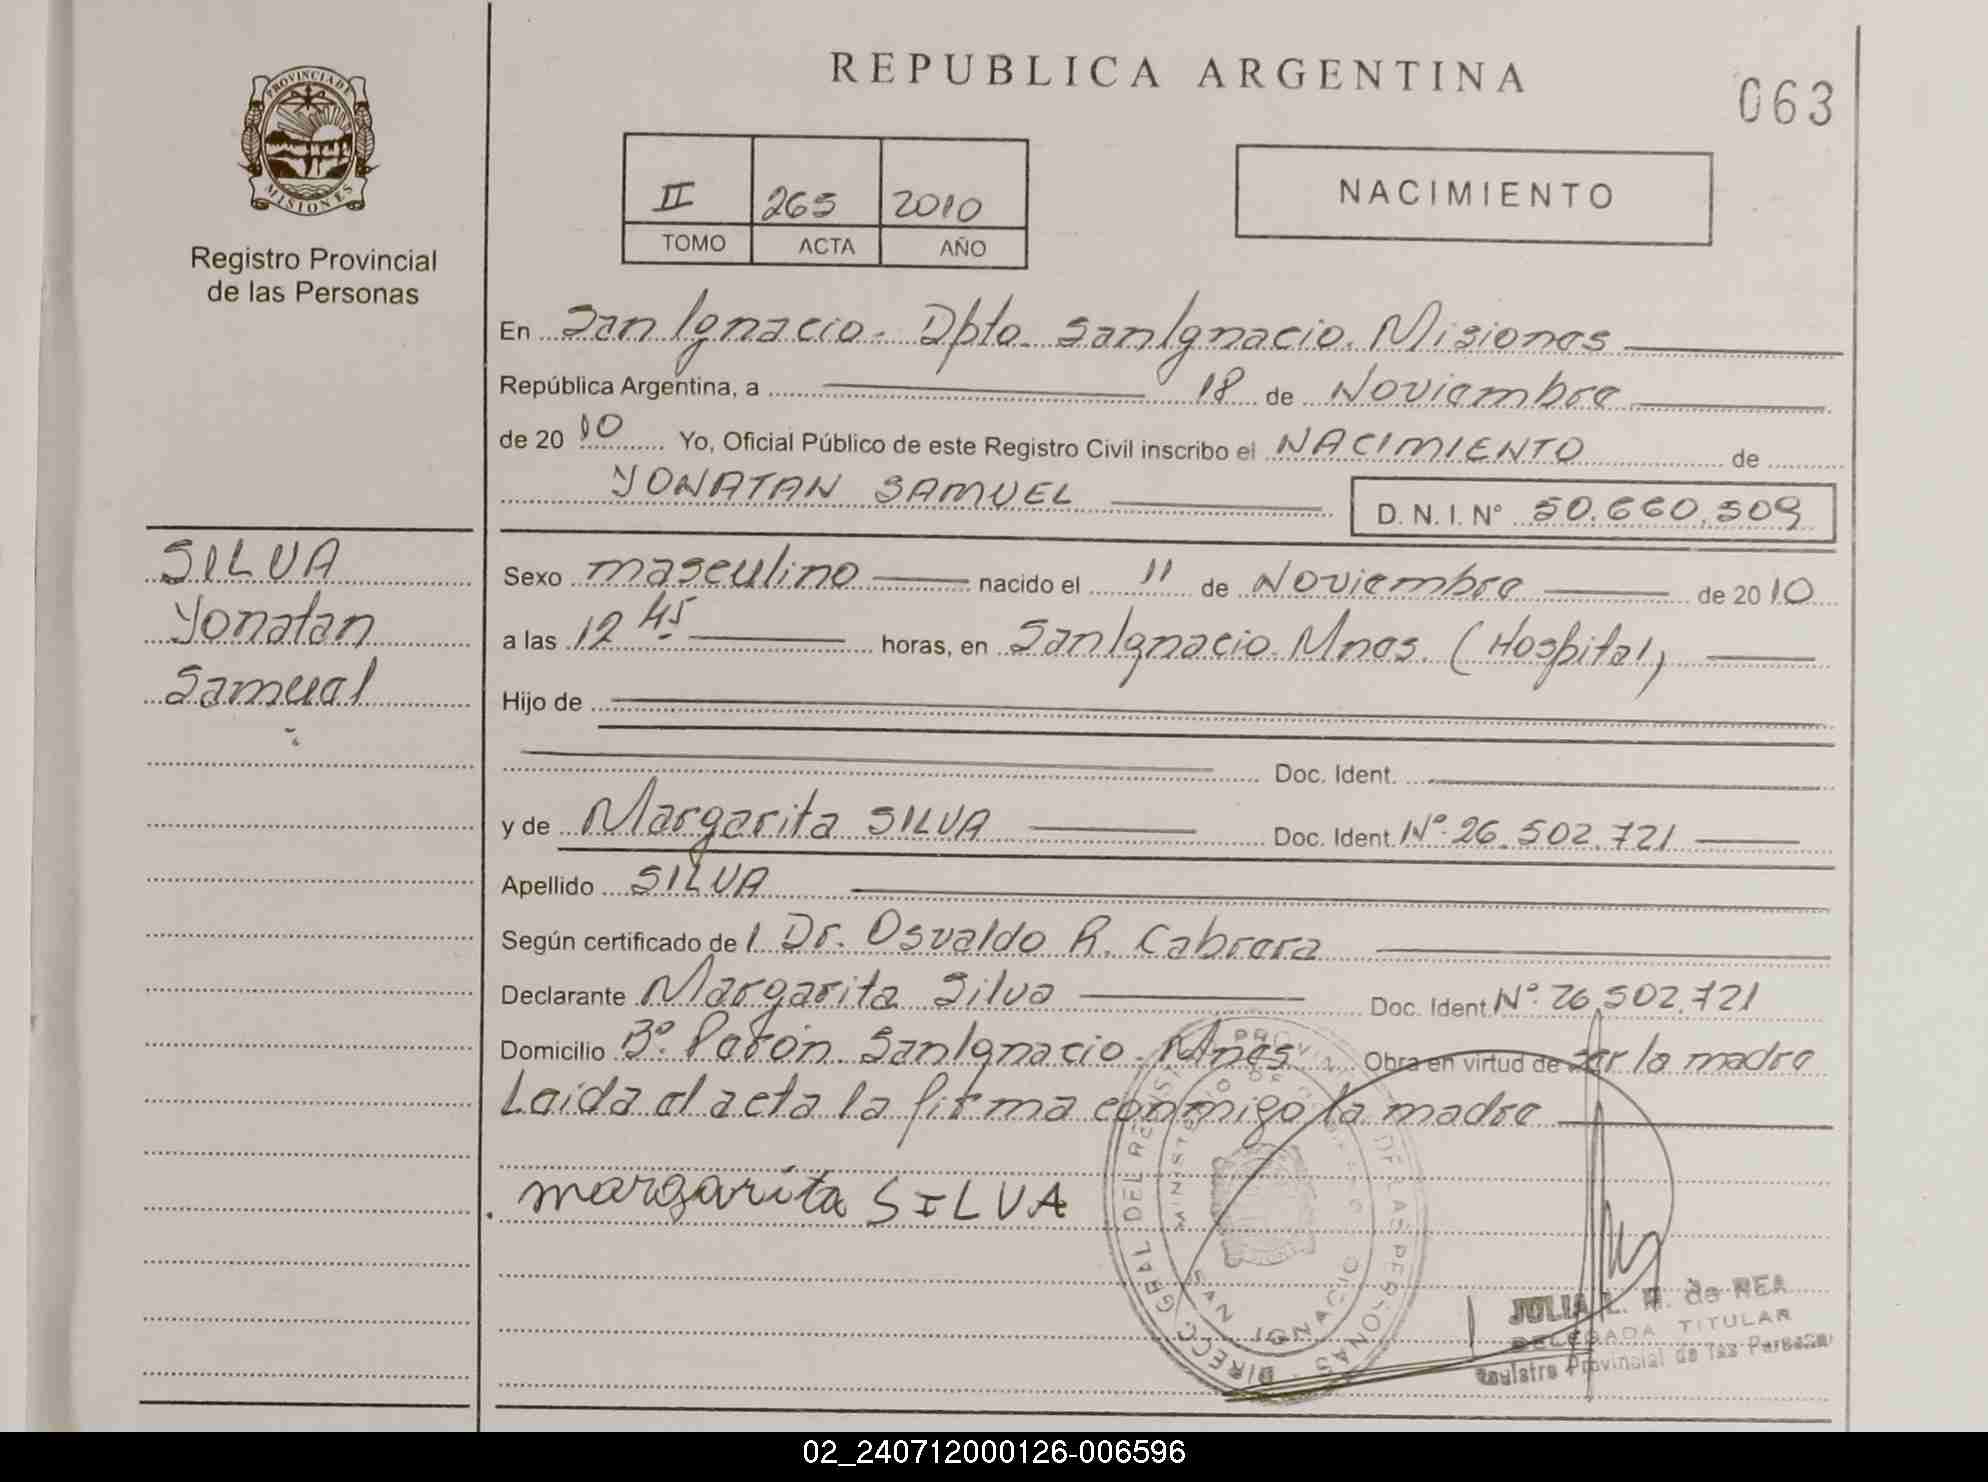 REPUBLICA ARGENTINA
063
PROVINCIA DE
MISIONES
Registro Provincial
de las Personas
II 265 2010
TOMO ACTA AÑO
NACIMIENTO
En San Ignacio. Dpto. San Ignacio. Misiones
República Argentina, a 18 de Noviembre
de 2010 Yo, Oficial Público de este Registro Civil inscribo el NACIMIENTO de
YONATAN SAMUEL D. N. I. N° 50.660.509
SILVA
Yonatan
Samuel
Sexo masculino nacido el 11 de Noviembre de 2010
a las 12 45 horas, en San Ignacio. Mnes. (Hospital)
Hijo de
Doc. Ident.
y de Margarita SILVA Doc. Ident. Nº 26.502.721
Apellido SILVA
Según certificado de l Dr. Osvaldo R. Cabrera
Declarante Margarita Silva Doc. Ident. Nº 26.502.721
Domicilio Bº. Perón San Ignacio. Mnes Obra en virtud de ser la madre
Leida el acta la firma conmigo la madre
margarita SILVA
DIRECC GRAL DEL REGIST PROVIN DE LAS PERSONAS
MINISTERIO DE
SAN IGNACIO
JULIA L. M. de REA
DELEGADA TITULAR
Registro Provincial de las Personas
02_240712000126-006596